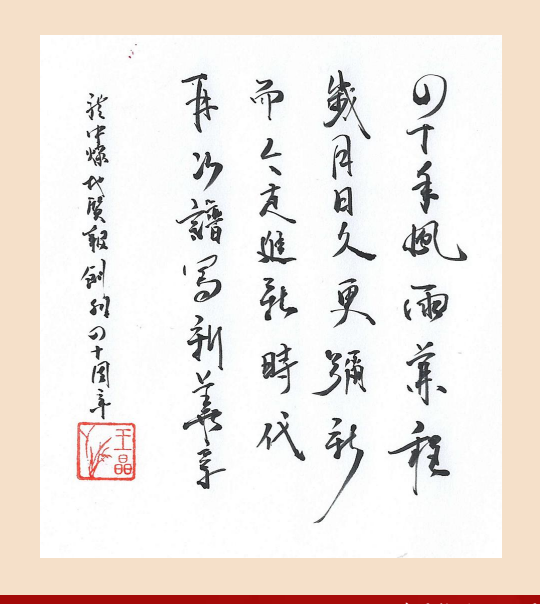 四十年风雨兼程
岁月日久更彌新
而今走進新時代
再次譜寫新華章
祝中煤地质报创刊四十周年
王晶